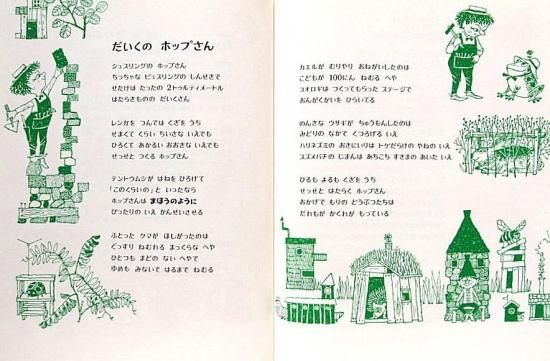 だいくの ホップさん
シュスリングの ホップさん
ちっちゃな ピュスリングの しんせきで
せたけは たったの 2トゥルティメートル
はたらきものの だいくさん
レンガを つんでは くぎを うち
せまくて くらい ちいさな いえでも
ひろくて あかるい おおきな いえでも
せっせと つくる ホップさん
テントウムシが はねを ひろげて
「このくらいの」と いったなら
ホップさんは まほうのように
ぴったりの いえ かんせいさせる
ふとった クマが ほしがったのは
ぐっすり ねむれる まっくらな へや
ひとつも まどの ない へやで
ゆめも みないで はるまで ねむる
カエルが むりやり おねがいしたのは
こどもが 100にん ねむる へや
コオロギは つくってもらった ステージで
おんがくかいを ひらいてる
のんきな ウサギが ちゅうもんしたのは
みどりの なかで くつろげる いえ
ハリネズミの おきにいりは トゲだらけの やねの いえ
スズメバチの じまんは あちこち すきまの あいた いえ
ひるも よるも くぎを うち
せっせと はたらく ホップさん
おかげで もりの どうぶつたちは
だれもが かくれが もっている